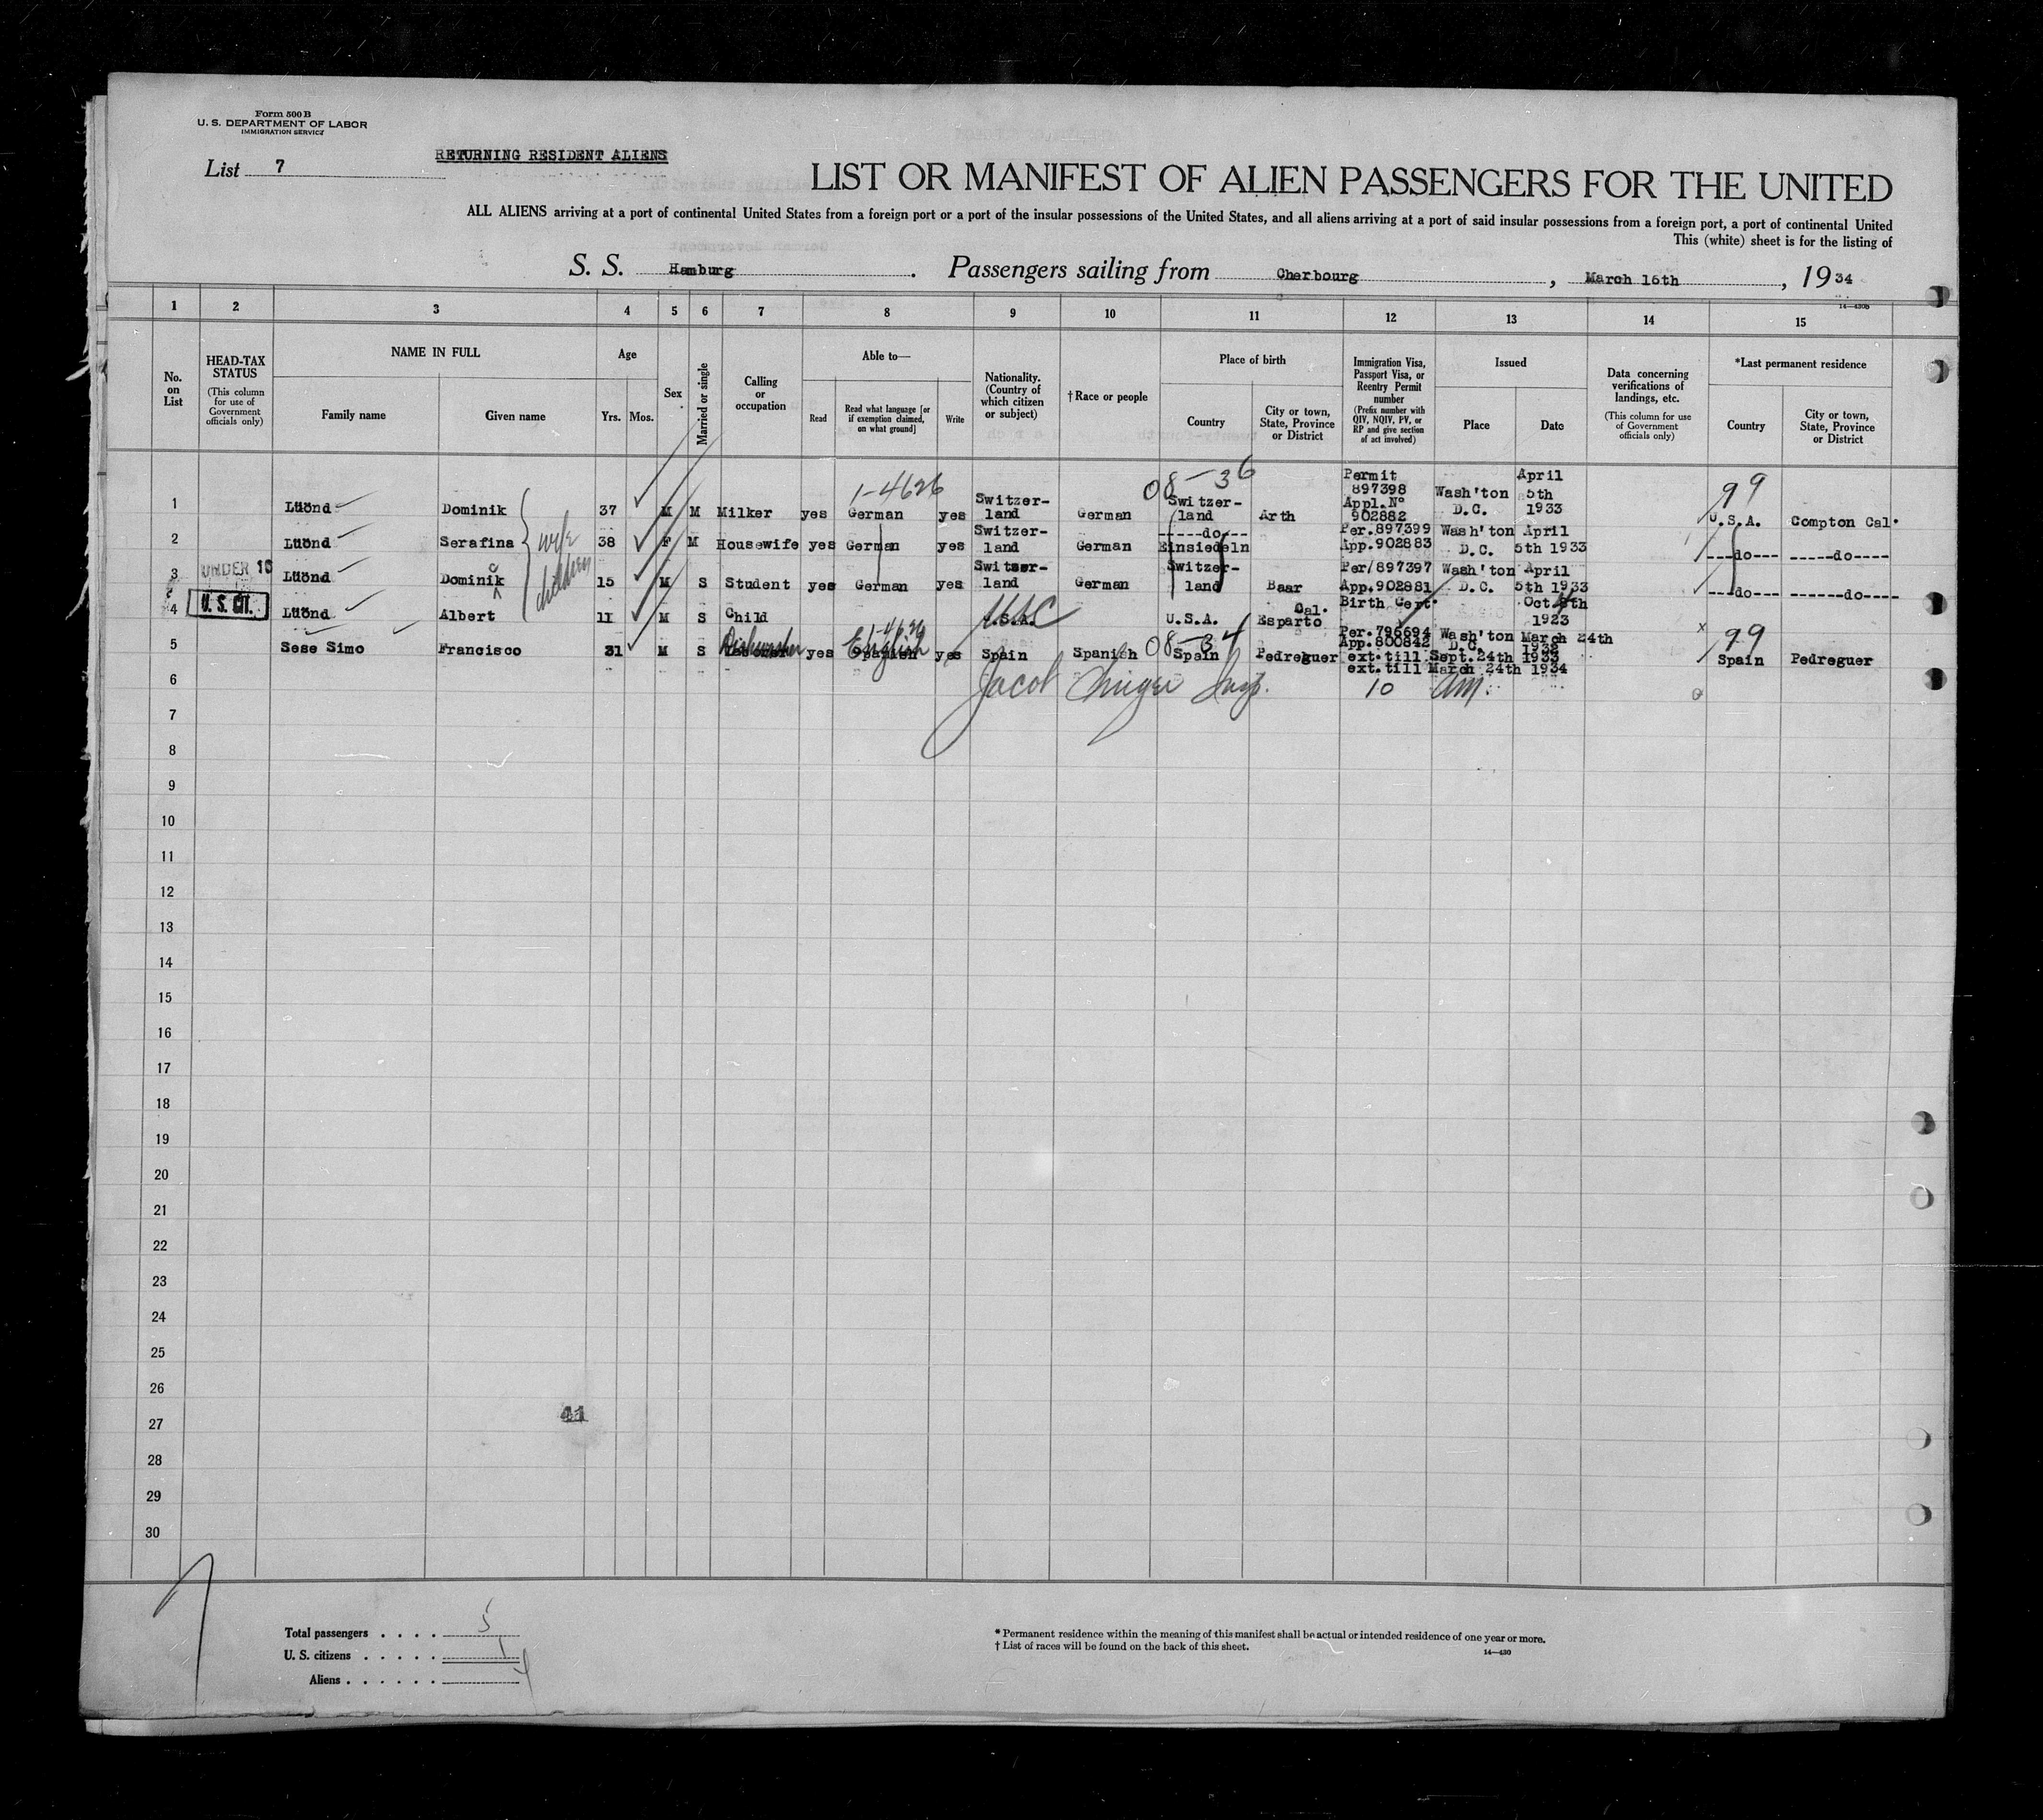 Form 500 B
U. S. DEPARTMENT OF LABOR
IMMIGRATION SERVICE
List 7
RETURNING RESIDENT ALIENS
LIST OR MANIFEST OF ALIEN PASSENGERS FOR THE UNITED
ALL ALIENS arriving at a port of continental United States from a foreign port or a port of the insular possessions of the United States, and all aliens arriving at a port of said insular possessions from a foreign port, a port of continental United
This (white) sheet is for the listing of
S. S. Hamburg. Passengers sailing from Cherbourg, March 16th, 1934
14—430B
1 2 3 4 5 6 7 8 9 10 11 12 13 14 15
No. on List
HEAD-TAX STATUS (This column for use of Government officials only)
NAME IN FULL
Family name
Given name
Age
Yrs. Mos.
Sex
Married or single
Calling or occupation
Able to—
Read
Read what language [or if exemption claimed, on what ground]
Write
Nationality. (Country of which citizen or subject)
†Race or people
Place of birth
Country
City or town, State, Province or District
Immigration Visa, Passport Visa, or Reentry Permit number (Prefix number with QIV, NQIV, PV, or RP and give section of act involved)
Issued
Place
Date
Data concerning verifications of landings, etc. (This column for use of Government officials only)
*Last permanent residence
Country
City or town, State, Province or District
1-4626 08-36 99
1 Lüönd Dominik 37 M M Milker yes German yes Switzer-land German Switzer-land Arth Permit 897398 Appl.Nº 902882 Wash'ton D.C. April 5th 1933 U.S.A. Compton Cal.
2 Lüönd Serafina wife 38 F M Housewife yes German yes Switzer-land German -----do--- Einsiedeln Per.897399 App.902883 Wash'ton D.C. April 5th 1933 ---do--- -----do----
3 UNDER 16 Lüönd Dominik c children 15 M S Student yes German yes Switzer-land German Switzer-land Baar Per/897397 App.902881 Wash'ton D.C. April 5th 1933 ---do--- ------do----
4 U. S. CIT. Lüönd Albert 11 M S Child U.S.A. USC U.S.A. Esparto Cal. Birth Cert. Oct.8th 1923
1-4626 08-34 99
5 Sese Simo Francisco 31 M S Dishwasher yes English Spanish yes Spain Spanish Spain Pedreguer Per.796694 App.800842 Wash'ton D.C. March 24th 1932 Spain Pedreguer
ext.till Sept.24th 1933
ext.till March 24th 1934
6 Jacob Insp. 10 am.
7
8
9
10
11
12
13
14
15
16
17
18
19
20
21
22
23
24
25
26
27
41
28
29
30
Total passengers . . . . 5
U. S. citizens . . . . . 1
Aliens . . . . . . 4
* Permanent residence within the meaning of this manifest shall be actual or intended residence of one year or more.
† List of races will be found on the back of this sheet.
14—430